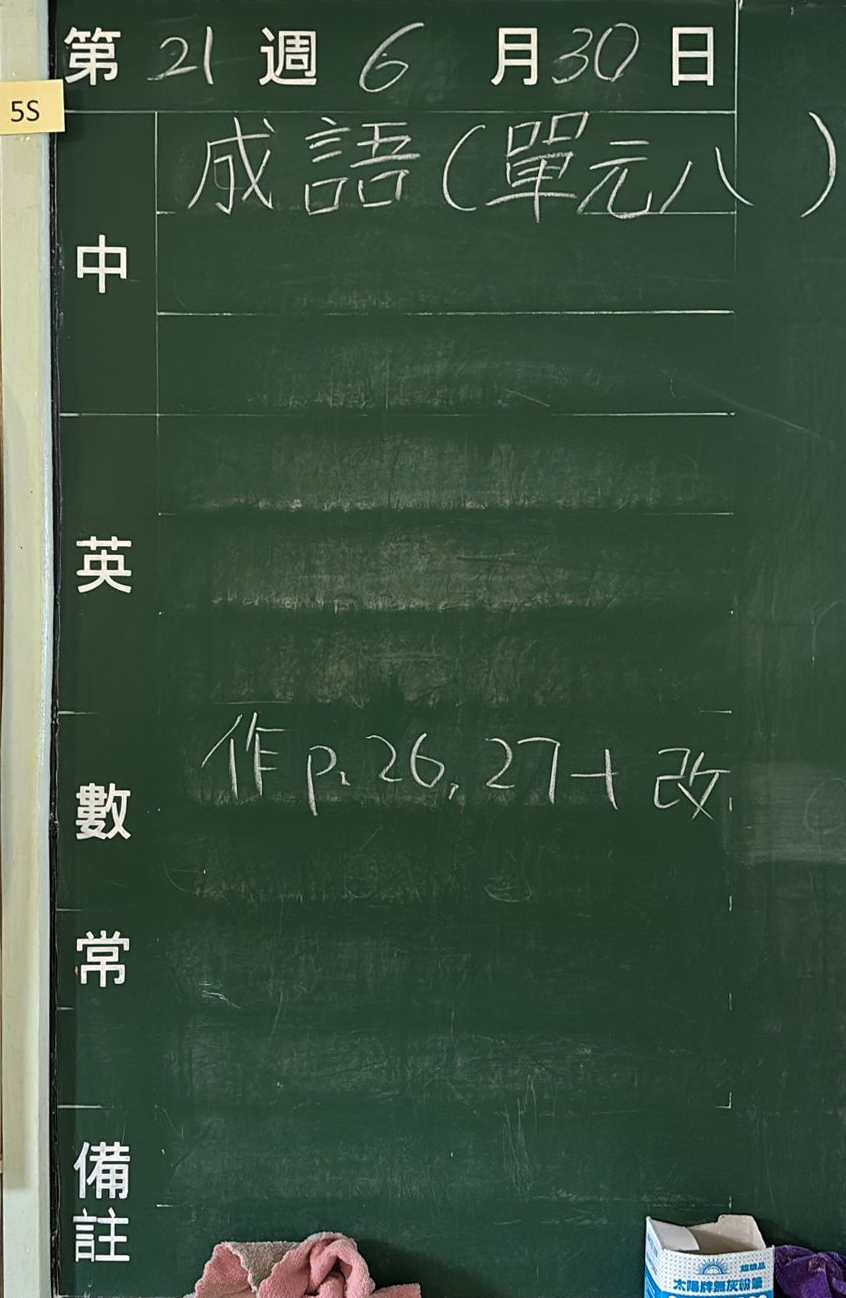 第 21 週 6 月 30 日
5S
中
成語(單元八)
英
數
作p.26,27+改
常
備註
太陽牌無灰粉筆